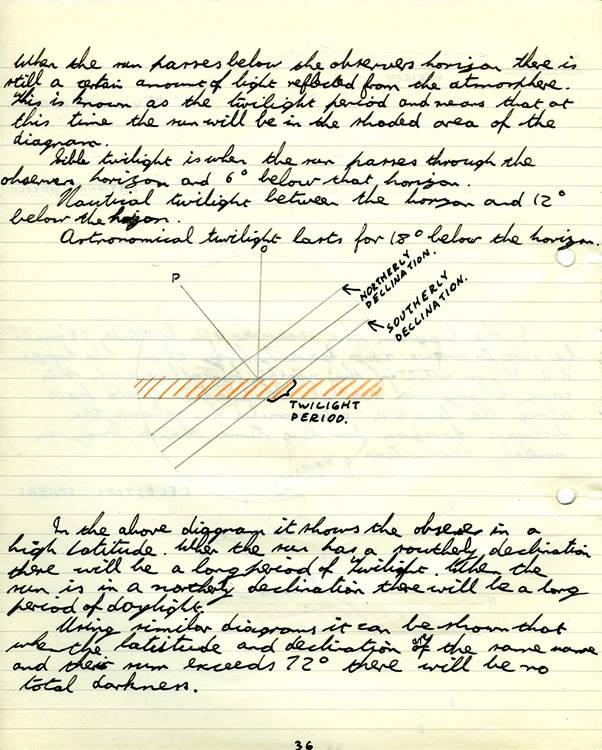 When the sun passes below the observers horizon there is
still a certain amount of light reflected from the atmosphere.
This is known as the twilight period and means that at
this time the sun will be in the shaded area of the
diagram.
twilight is when the sun passes through the
observers horizon and 6° below that horizon.
Nautical twilight between the horizon and 12°
below the horizon.
Astronomical twilight lasts for 18° below the horizon.
O
P
NORTHERLY
DECLINATION.
SOUTHERLY
DECLINATION.
TWILIGHT
PERIOD.
In the above diagram it shows the observer in a
high latitude. When the sun has a southely declination
there will be a long period of twilight. When the
sun is in a northely declination there will be a long
period of daylight.
Using similar diagrams it can be shown that
when the latitude and declination are of the same name
and their sum exceeds 72° there will be no
total darkness.
36